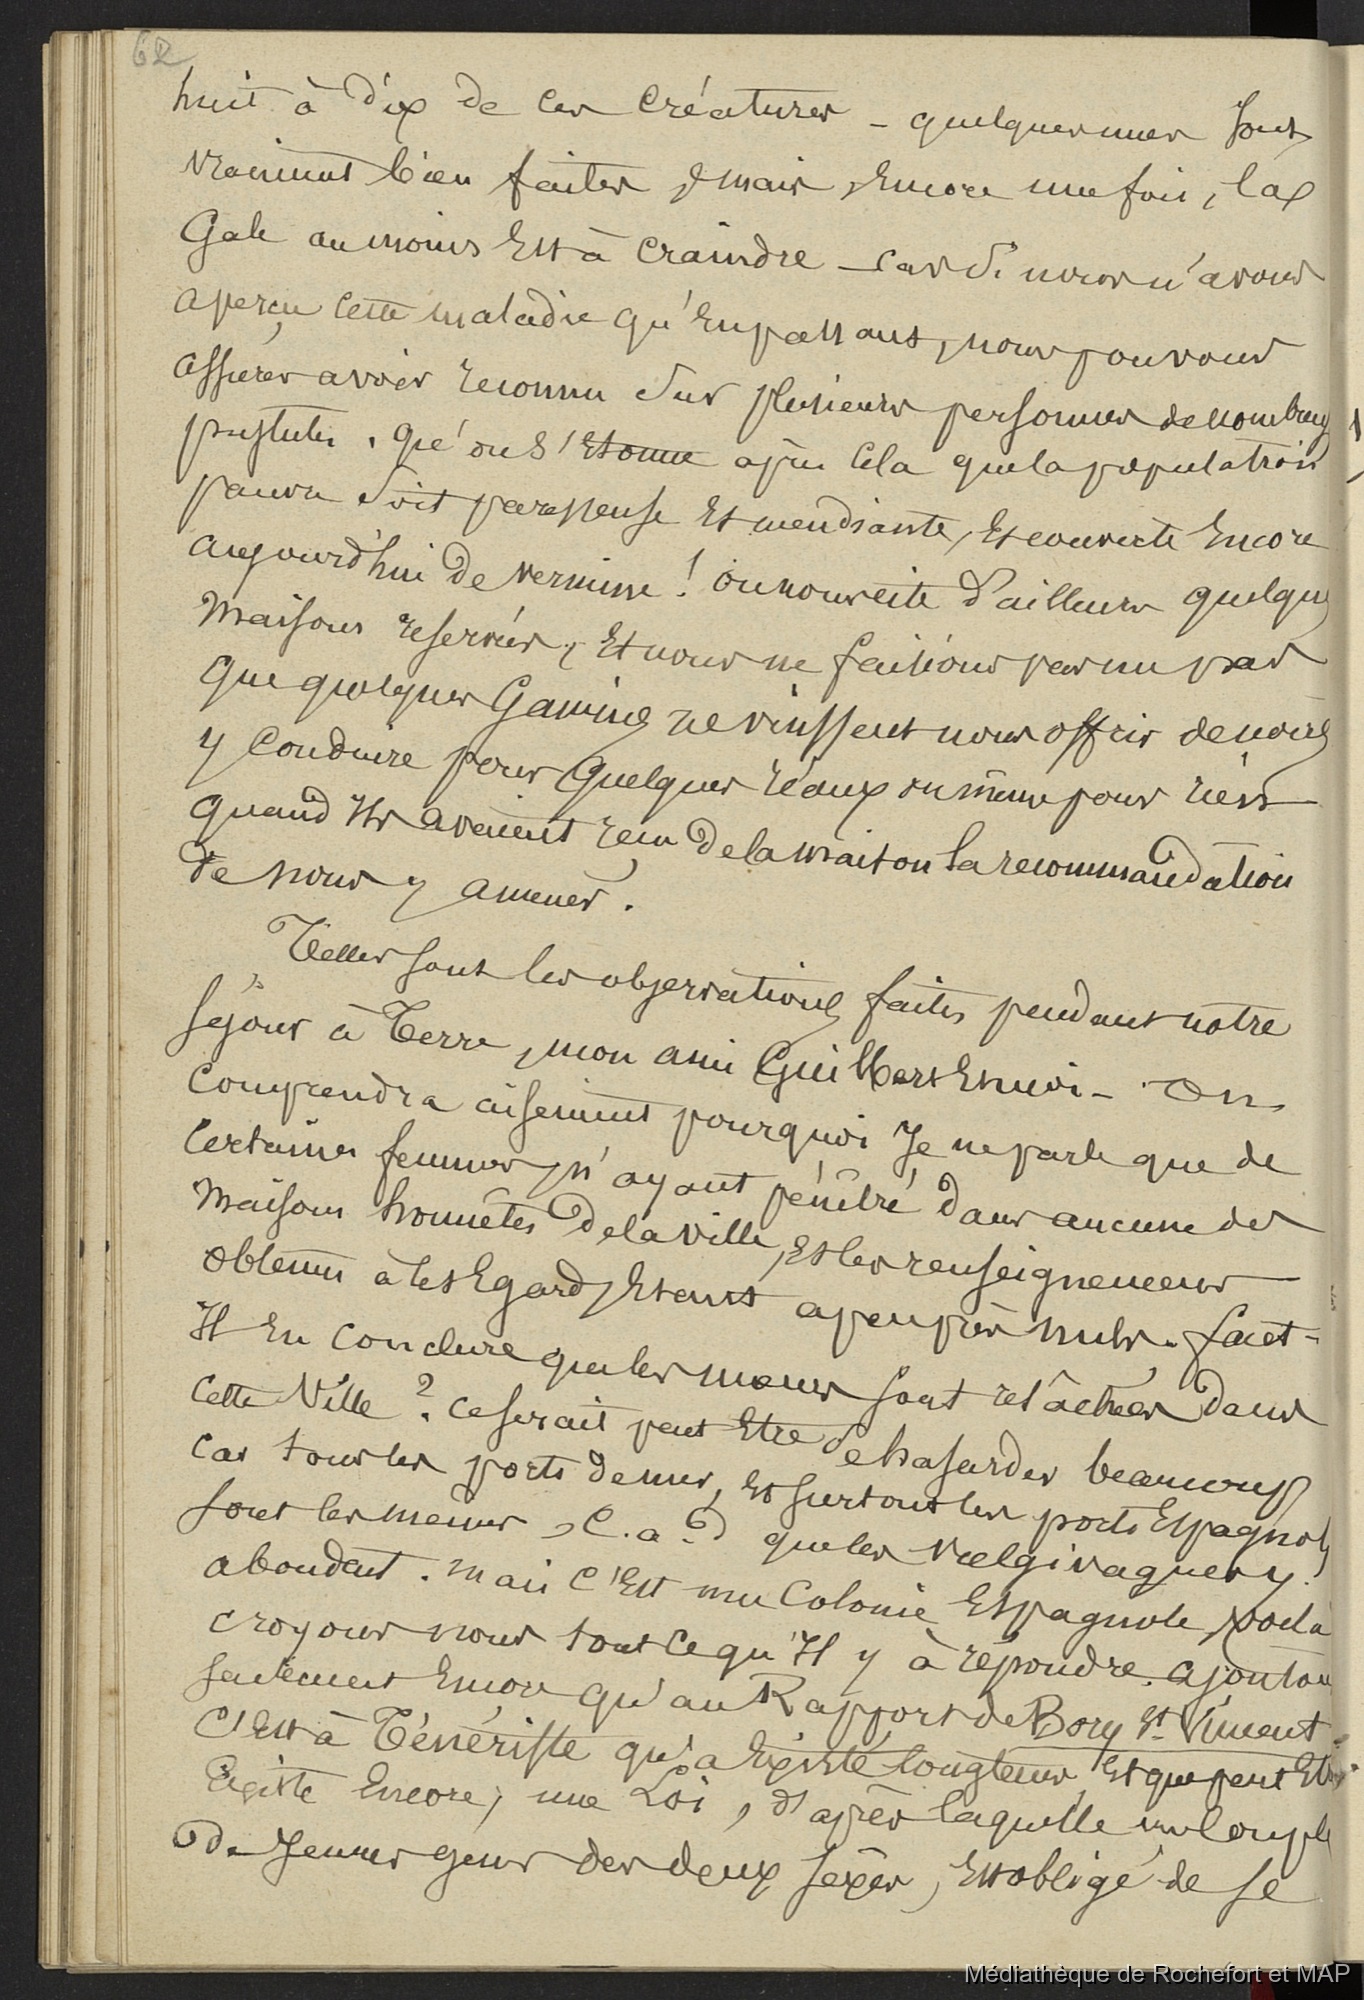 62
huit à dix de ces créatures - quelques unes sont
vraiment bien faites, mais, encore une fois, la
Gale au moins Est à craindre - car si nous n'avons
aperçu cette maladie qu'en passant, nous pouvons
assurer avoir reconnu sur plusieurs personnes de nombreux
pustules. qu'on s'Etonne après cela que la population
pauvre soit paresseuse Et mendiante, Et couverte Encore
aujourd'hui de vermine! on nous cite d'ailleurs quelques
maisons reservées, Et nous ne faisions pas un pas
que quelques Gamins ne vinssent nous offrir de nous
y conduire pour quelques réaux ou même pour rien
quand Ils avaient reçu de la maison la recommandation
de nous y amener.
Telles sont les observations faites pendant notre
séjour à Terre, mon ami Guilbert Et moi - On
comprendra aisement pourquoi Je ne parle que de
certaines femmes, n'ayant pénétré dans aucune des
maisons honnêtes de la ville, Et les renseignemens
obtenus à cet Egard, Etant apeuprès nuls. faut-
Il En conclure que les mœurs sont relâchées dans
cette Ville? ce serait peut Etre se hasarder beaucoup
car tous les ports de mer, Et surtout les ports Espagnols
sont les mêmes, C.a.d que les vulgivagues y
abondent. mais c'Est une Colonie Espagnole, voilà
croyons nous tout ce qu'Il y à répondre. ajoutons
seulement Encore qu'au Rapport de Bory St. Vincent
c'Est à Ténériffe qu'a Existé longtems, Et que peut Etre
Existe Encore, une Loi, d'après laquelle un couple
de Jeunes gens des deux sexes, Est obligé de se
Médiathèque de Rochefort et MAP